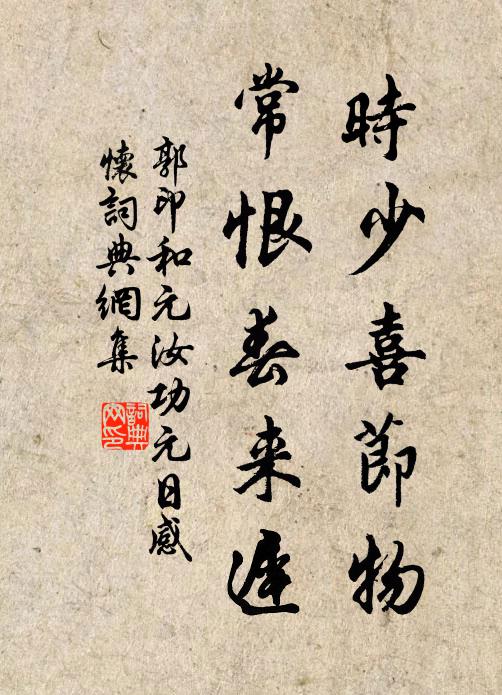 時少喜節物
常恨春来遲
郭印和元汝功元日感
懷詞典網集
詞典
网印